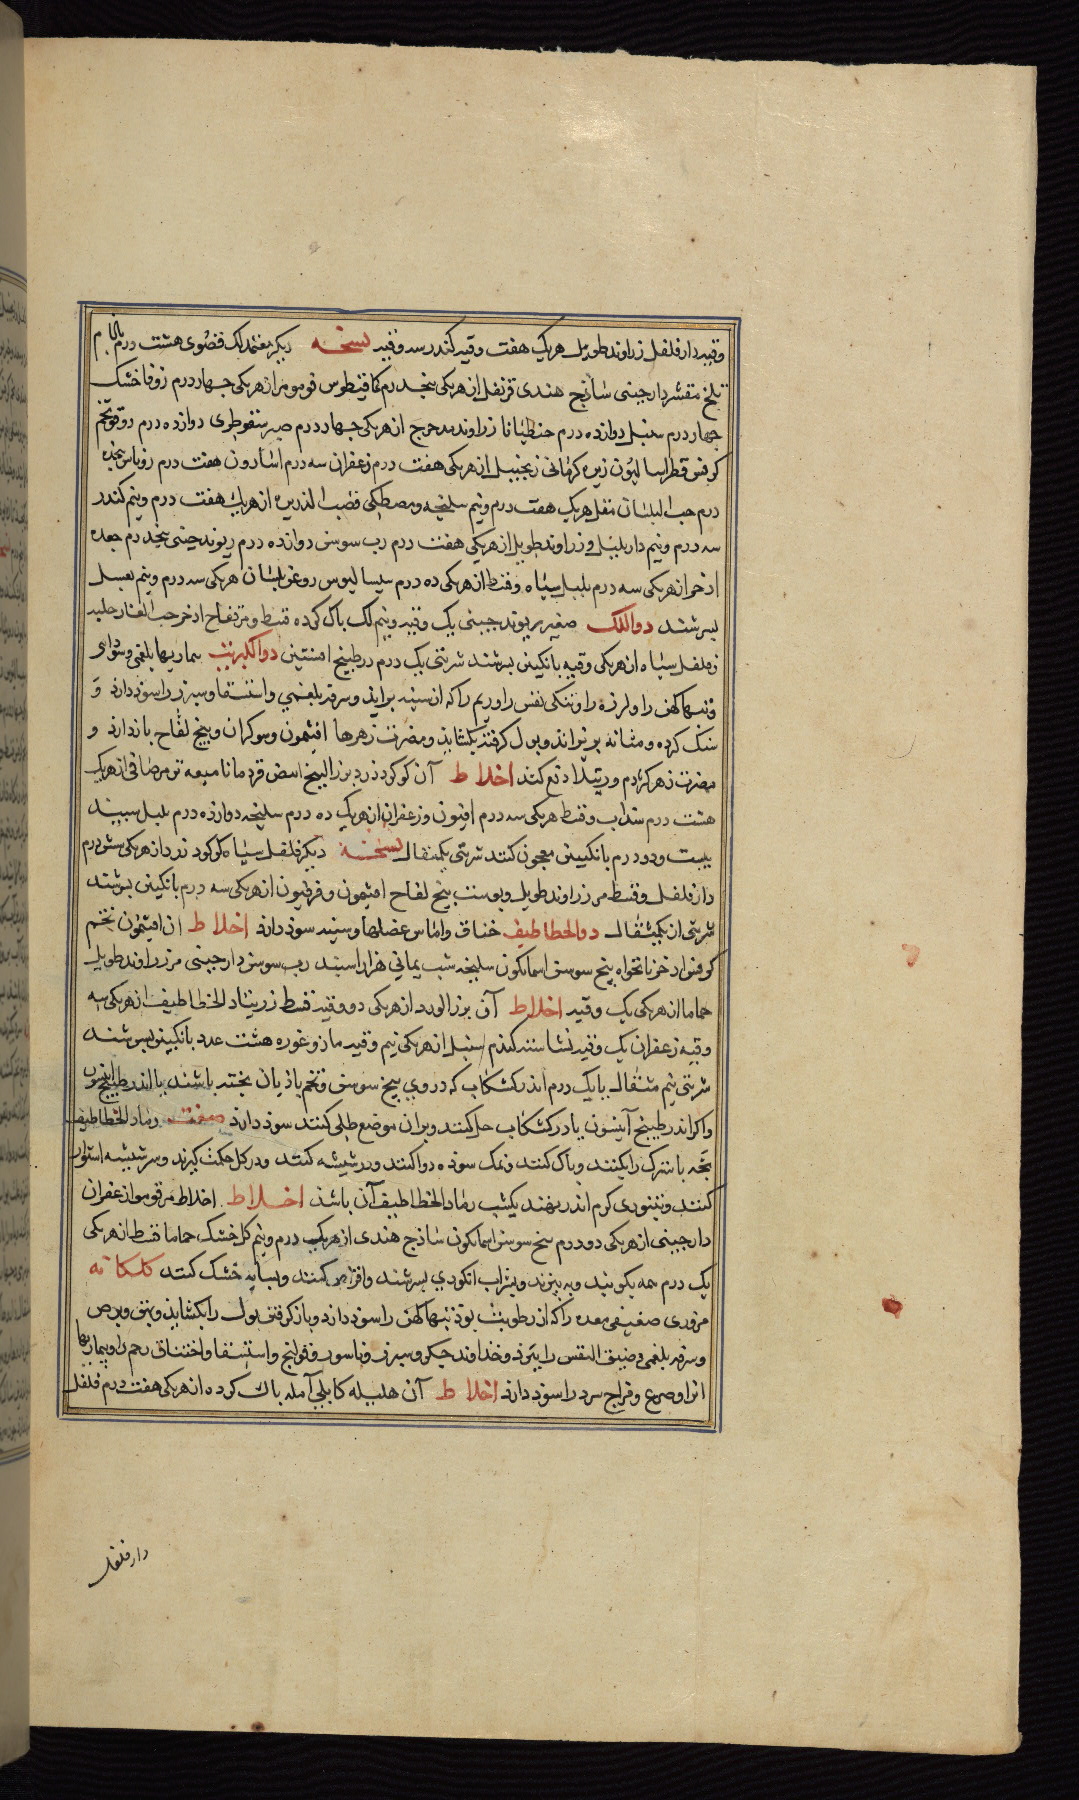 وقیه دارفلفل زراوند طویل هریک هفت وقیه کندر سه وقیه نسخه دیکر هفتم لک فضوی هشت درم
تلخ مقشر دارچینی ساذج هندی قرنفل از هریکی پنجدرم کمافیطوس فو مو مر از هریکی جهاردرم زوفا خشک
جهار درم سنبل دوازده درم جنطیانا زراوند مدحرج از هریکی جهاردرم صبر سقوطری دوازده درم دوقو تخم
کرفس قطراسالیون زیره کرمانی زنجبیل از هریکی هفت درم زعفران سه درم اسارون هفت درم روناس پنجده
درم حب البلسان مقل هریک هفت درم ونیم سلیخه ومصطکی قصب الذریره از هریک هفت درم ونیم کندر
سه درم ونیم داربلبل و زراوند طویل از هریکی هفت درم رب سوس دوازده درم ریوند چینی پنجدرم جعده
اذخر از هریکی سه درم بلبل سیاه وقسط از هریکی ده درم سیسالیوس روغن بلسان هریکی سه درم ونیم بعسل
بسرشند دواللک صغیر ریوند چینی یک وقیه ونیم لک پاک کرده قسط ومر فقاح اذخر حب الغار حلبه
و فلفل سیاه از هریکی وقیه بانکبین بسرشند شربتی یک درم در طبیخ افسنتین دواالکبریت بیماریها بلغمی وسوداوی
وتبها کهن را ولرزه را وتنکی نفس را وریم را که از سینه براید وسرفه بلغمی واستسقا وسپرز را سود دارد و
سنک کرده ومثانه بریزاند وبول کرفته بکشاید ومضرت زهرها افیمون وشوکران وبیخ لفاح بازدارد و
مضرت زهر کژدم ورتیلا دفع کند اخلاط آن کوکرد زرد بزر البنج ابیض قردمانا میعه تر مرصافی از هریک
هشت درم سداب وقسط هریکی سه درم افیون وزعفران از هریک ده درم سلیخه دوازده درم بلبل سپید
بیست ودودرم بانکبین معجون کنند شربتی یکمثقال نسخه دیکر فلفل سیاه کوکرد زرد از هریکی شش درم
دارفلفل وقسط مر زراوند طویل وپوست بیخ لفاح افیمون وفرفیون از هریکی سه درم بانکبین بسرشند
شربتی از یکمثقال دواالخطاطیف خناق واماس عضلها وسینه سود دارد اخلاط ان افیتمون تخم
کرفس اذخر نانخواه بیخ سوسن اسمانکون سلیخه شب یمانی هزار اسپند رب سوس دارچینی مر زراوند طویل
حماما از هریکی یک وقیه اخلاط آن بزر الورد از هریکی دو وقیه قسط زر رماد الخطاطیف از هریکی سه
وقیه زعفران یک وقیه نشاسته کندم سنبل از هریکی نیم وقیه مازو غوره هشت عدد بانکبین بسرشند
شربتی نیم مثقال یا یک درم اندر کشکاب که در وی بیخ سوسن وتخم باذیان پخته باشند یا اندر طبیخ انیسون
واکر اندر طبیخ آنیسون یا در کشکاب حل کنند وبران موضع طلی کنند سود دارد صفت رماد الخطاطیف
بچه باسترک را بکشند وپاک کنند ونمک سوده دروا کنند ودر شیشه کنند ودر کل حکمت کیرند وسر شیشه استوار
کنند وبتنوری کرم اندر نهند یکشب رماد الخطاطیف آن باشد اخلاط اخلاط مرقومو از عفران
دارچینی از هریکی دو درم بیخ سوسن اسمانکون ساذج هندی از هریک درم ونیم کل خشک حماما قسط از هریکی
یک درم همه بکوبند وبه بیزند وبشراب انکوری بسرشند واقراص کنند وبسایه خشک کنند کلکانه
مزوری ضعیفی معده را که از رطوبت بود تبها کهن را سود دارد وباز کرفتن بول را بکشاید وبهق وبرص
وسرفه بلغمی وضیق النفس را ببرد وخداوند جکر وسپرز وناسور وقولنج واستسقا واختناق رحم را وبیماریها
انرا وصرع ومزاج سرد را سود دارد اخلاط آن هلیله کابلی آمله پاک کرده از هریکی هفت درم فلفل
دارفلفل